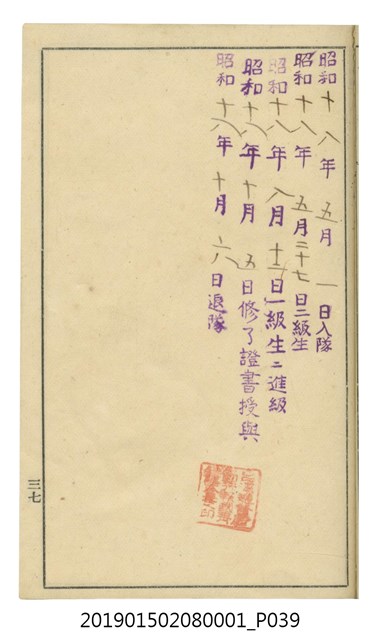 昭和十八年五月一日入隊
昭和十八年五月二十七日二級生
昭和十八年八月十二日一級生ニ進級
昭和十八年十月五日修了證書授與
昭和十八年十月六日退隊
三七
201901502080001_P039